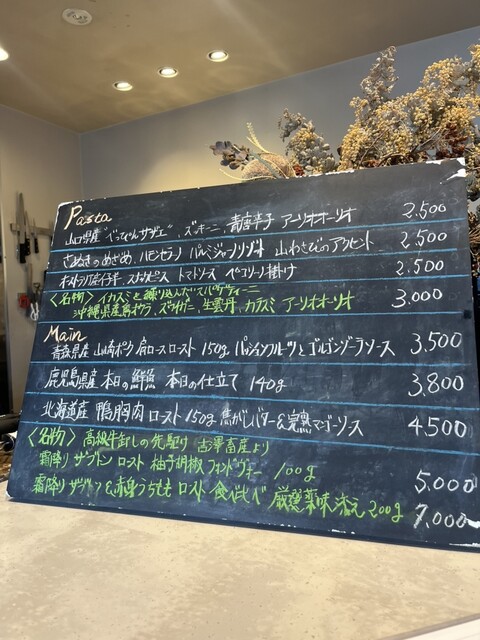 Pasta
山口県産"べっぴんサザエ" ズッキーニ 青唐辛子 アーリオオーリオ 2.500
さぬきのめざめ、ハモンセラーノ パルミジャーノリゾット 山わさびのアクセント 2.500
トマトソース ペコリーノ掛け 2.500
<名物> イカスミを練り込んだスパゲティーニ
沖縄県産島オクラ、ズワイガニ、生雲丹、カラスミ アーリオオーリオ 3.000
Main
青森県産 山崎ポーク 肩ロースロースト 150g パッションフルーツとゴルゴンゾーラソース 3.500
鹿児島県産 本日の鮮魚 本日の仕立て 140g 3.800
北海道産 鴨胸肉 ロースト 150g 焦がしバター&完熟マンゴーソース 4500
<名物> 高級牛卸しの先駆け 吉澤畜産より
霜降り ザブトン ロースト 柚子胡椒 フォンドヴォー 100g 5.000
霜降り ザブトン&赤身うちもも ロースト 食べ比べ 厳選薬味添え 200g 7.000